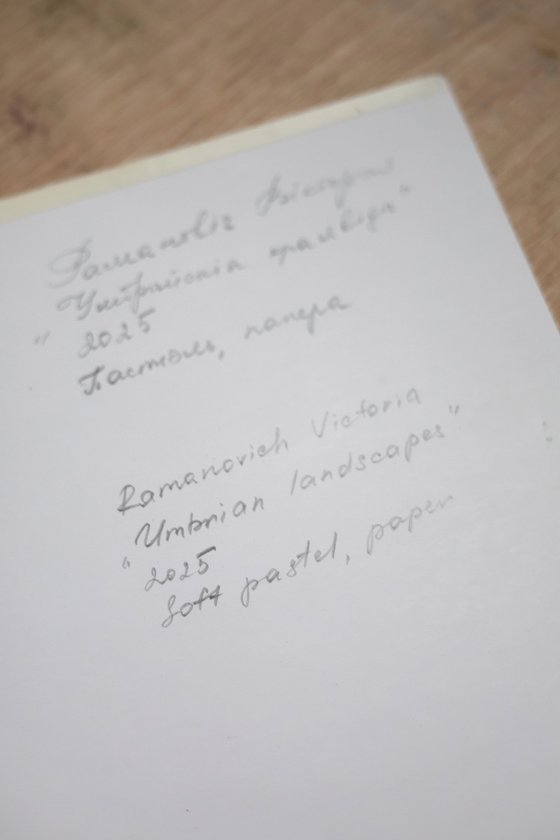 Рамановіч Вікторыя
"Умбрыйскія краявіды"
2025
Пастэль, папера
Ramanovich Victoria
"Umbrian landscapes"
2025
Soft pastel, paper